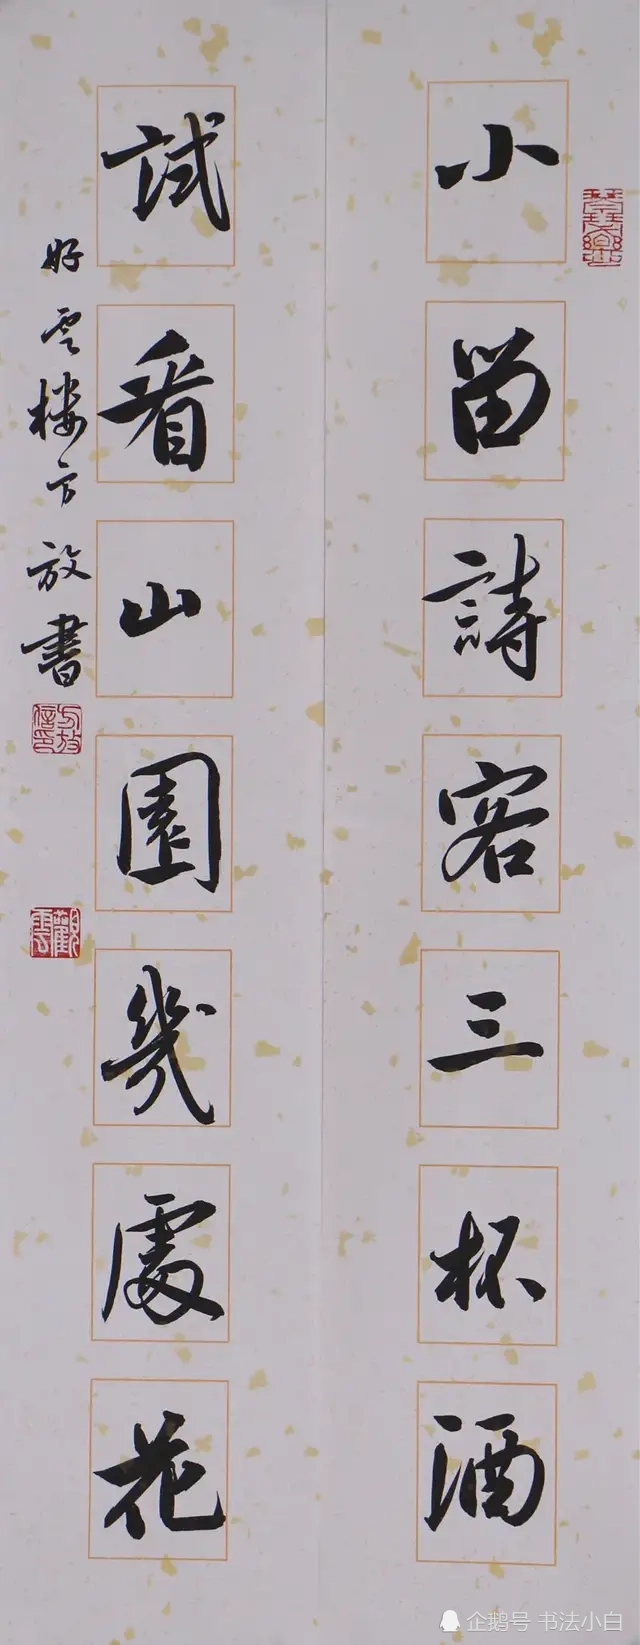 小留詩客三杯酒
試看山園幾處花
好雲樓方放書
方放信印
觀雲
企鹅号 书法小白